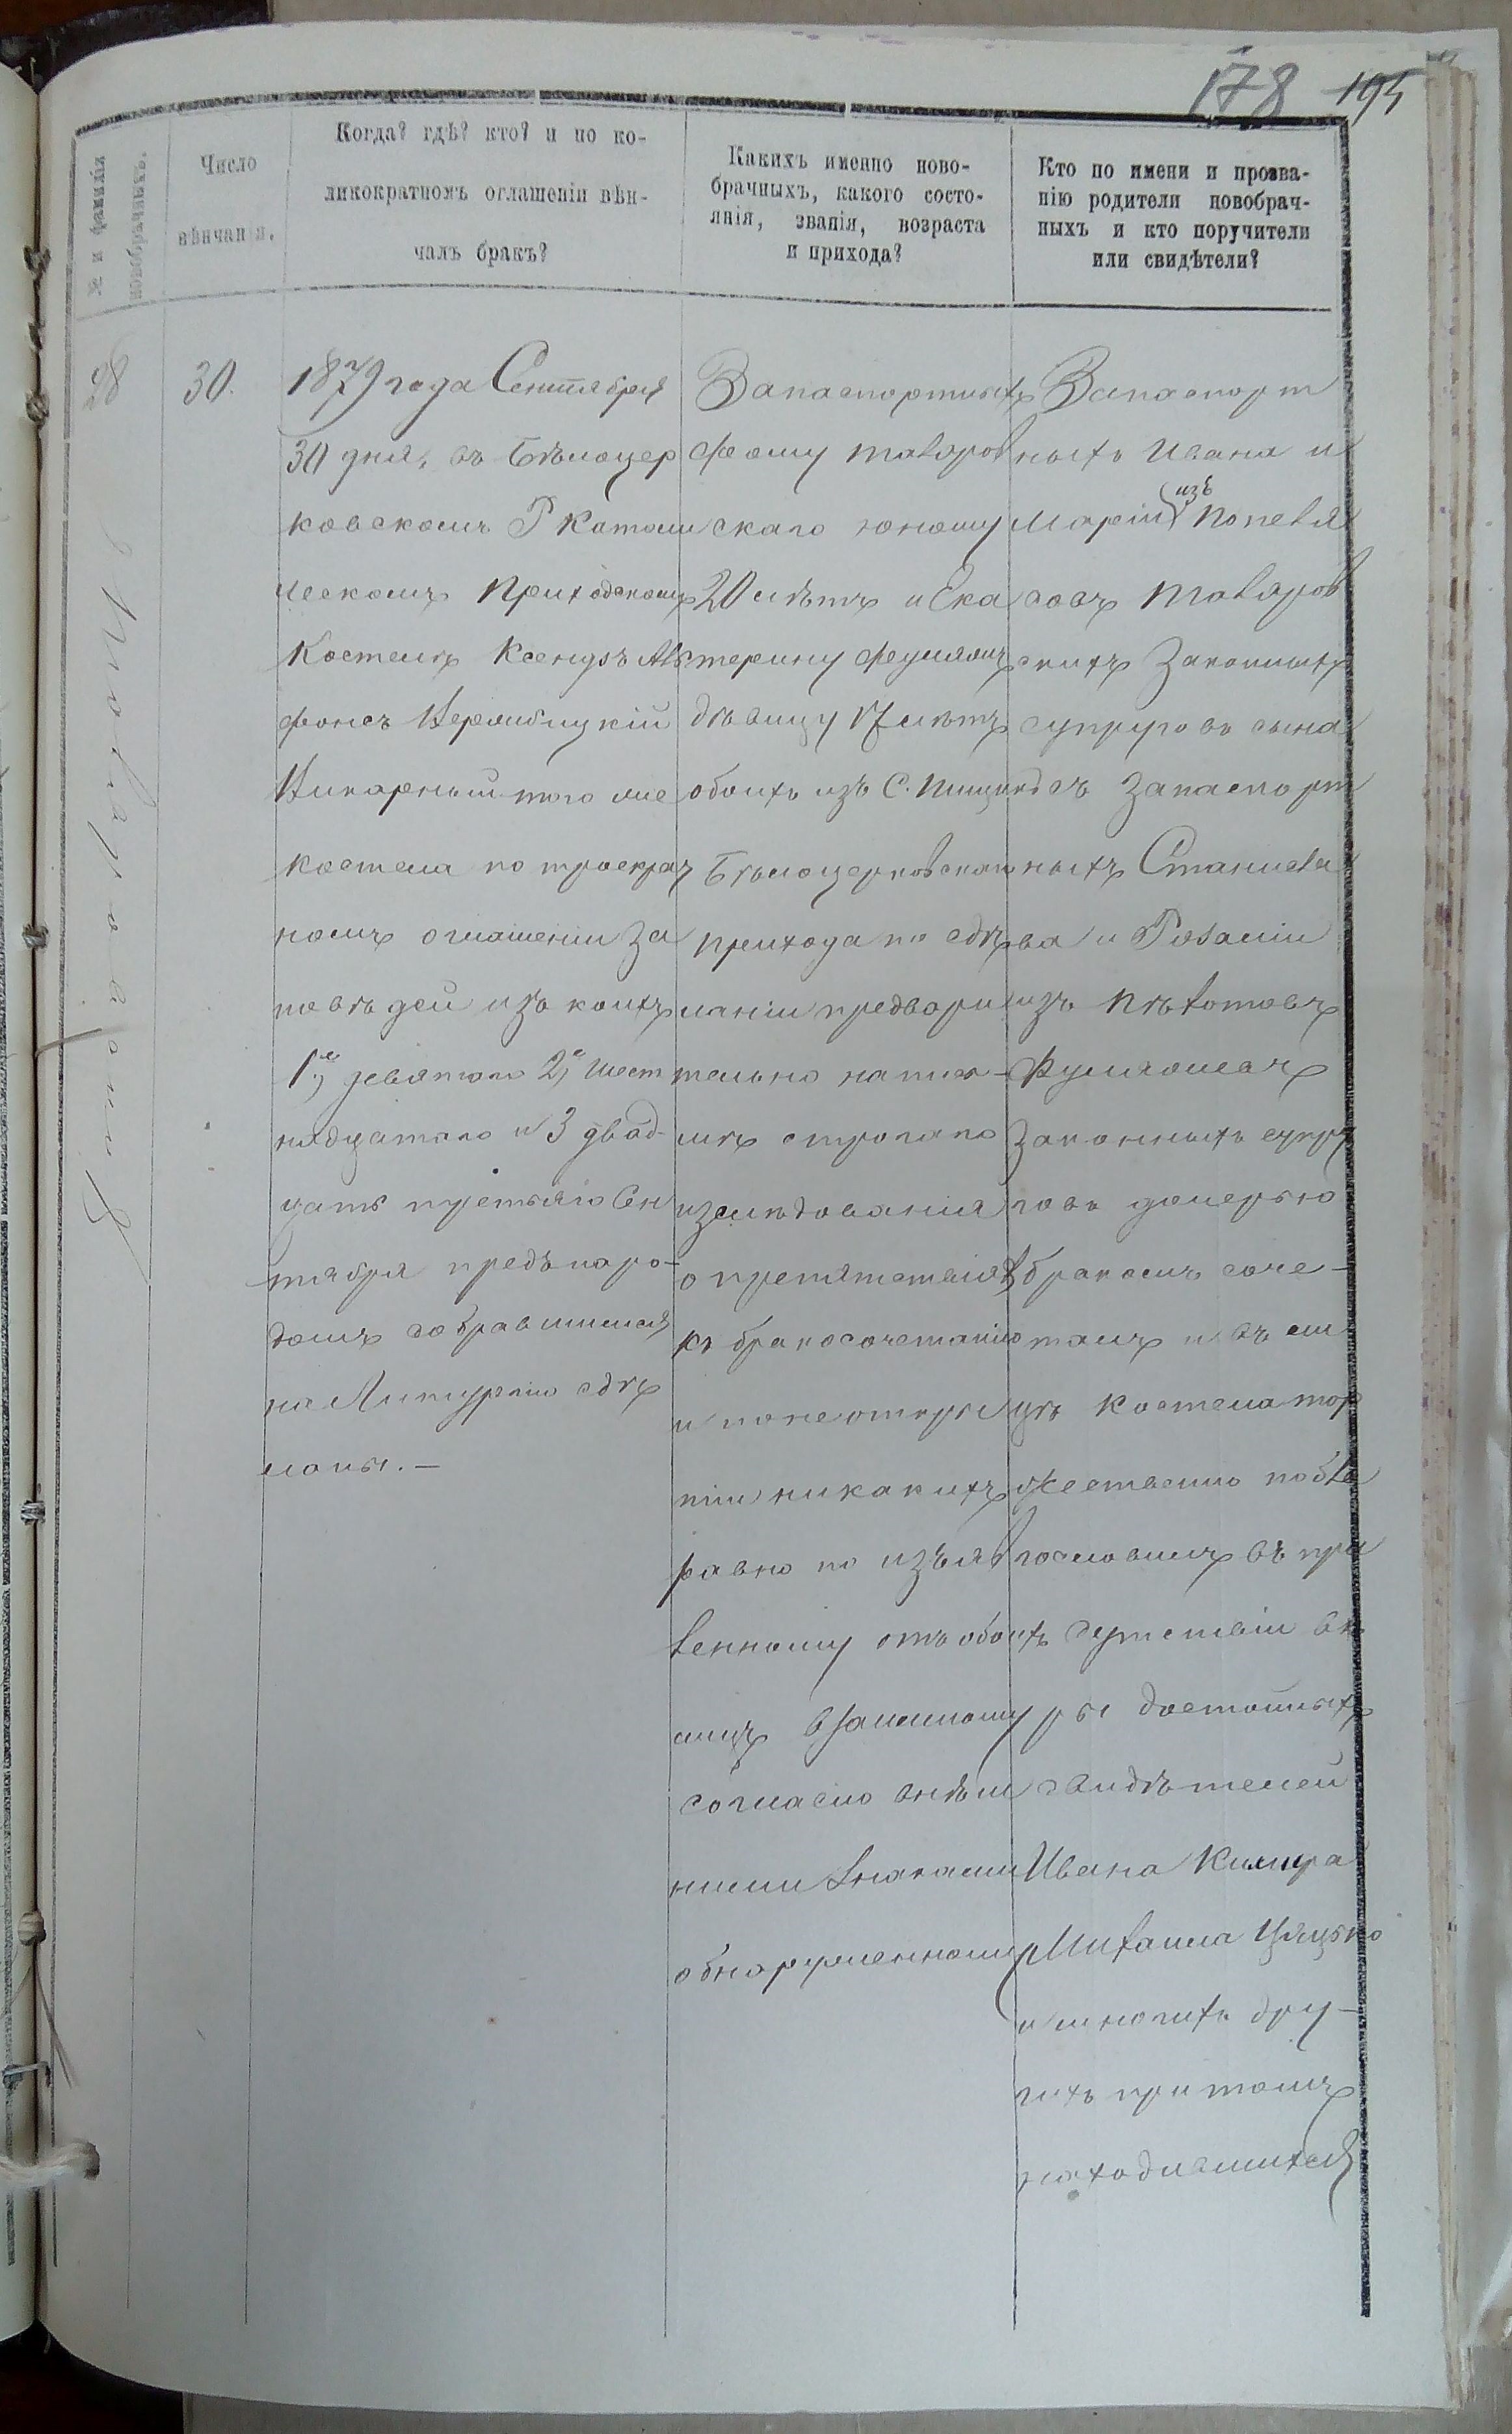 178 195
№ и фамилія
новобрачныхъ.
Число
вѣнчанія.
Когда? гдѣ? кто? и по ко-
ликократномъ оглашеніи вѣн-
чалъ бракъ?
Какихъ именно ново-
брачныхъ, какого состо-
янія, званія, возраста
и прихода?
Кто по имени и прозва-
нію родители новобрач-
ныхъ и кто поручители
или свидѣтели?
28
30.
1879 года Сентября
30 дня, въ Бѣлоцер
ковскомъ Р Католи
ческомъ Приходскомъ
Костелѣ Ксендзъ Аль
фонсъ
Викарный того же
костела по троекрат
номъ оглашеніи за
повѣдей изъ коихъ
1е, девятаго 2е, шест
надцатаго и 3 двад-
цать третьяго Сен
тября предъ наро-
домъ собравшимся
на Литургію сдѣ
ланы.—
Запаспортныхъ
Фому
скаго юношу
20 лѣтъ и Ека
терину
дѣвицу 17 лѣтъ
обоихъ изъ С.
Бѣлоцерковскаго
прихода по сдѣ
ланіи предвари
тельно
лѣ строгаго
изслѣдованія
о препятствіяхъ
къ бракосочетанію
и по неоткры
тіи никакихъ
равно по изъяв
ленному отъ обоихъ
лицъ взаимному
согласію внѣш
ними знаками
обнаруженному
Запаспорт
ныхъ Ивана и
Маріи изъ
совъ
скихъ Законныхъ
супруговъ сына
съ запаспорт
ныхъ Станисла
ва и Розаліи
изъ
законныхъ супру
говъ дочерью
бракомъ соче-
талъ и въ ли
цѣ костела тор
жественно побла
гословилъ въ при
сутствіи вѣ
ры достойныхъ
свидѣтелей
Ивана
Михаила
и многихъ дру-
гихъ при томъ
находившихся